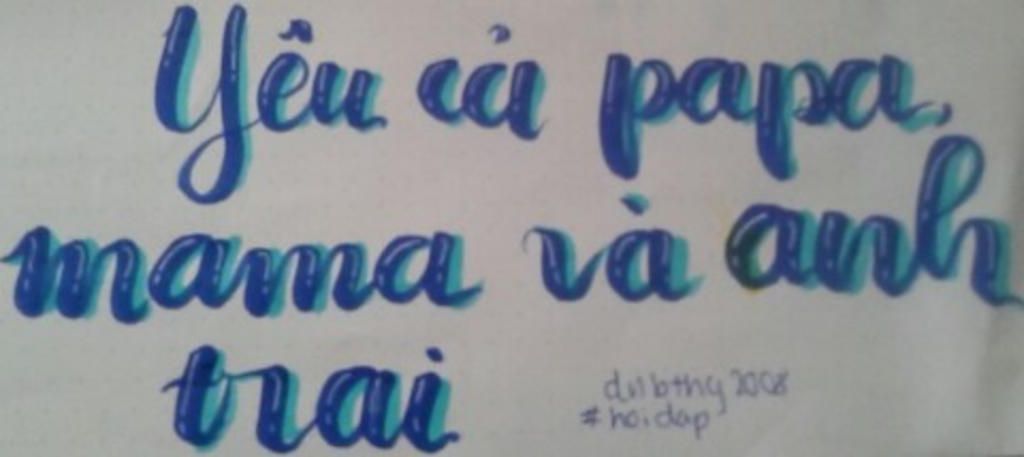 Yêu cả papa,
mama và anh
trai
2008
#hoidap